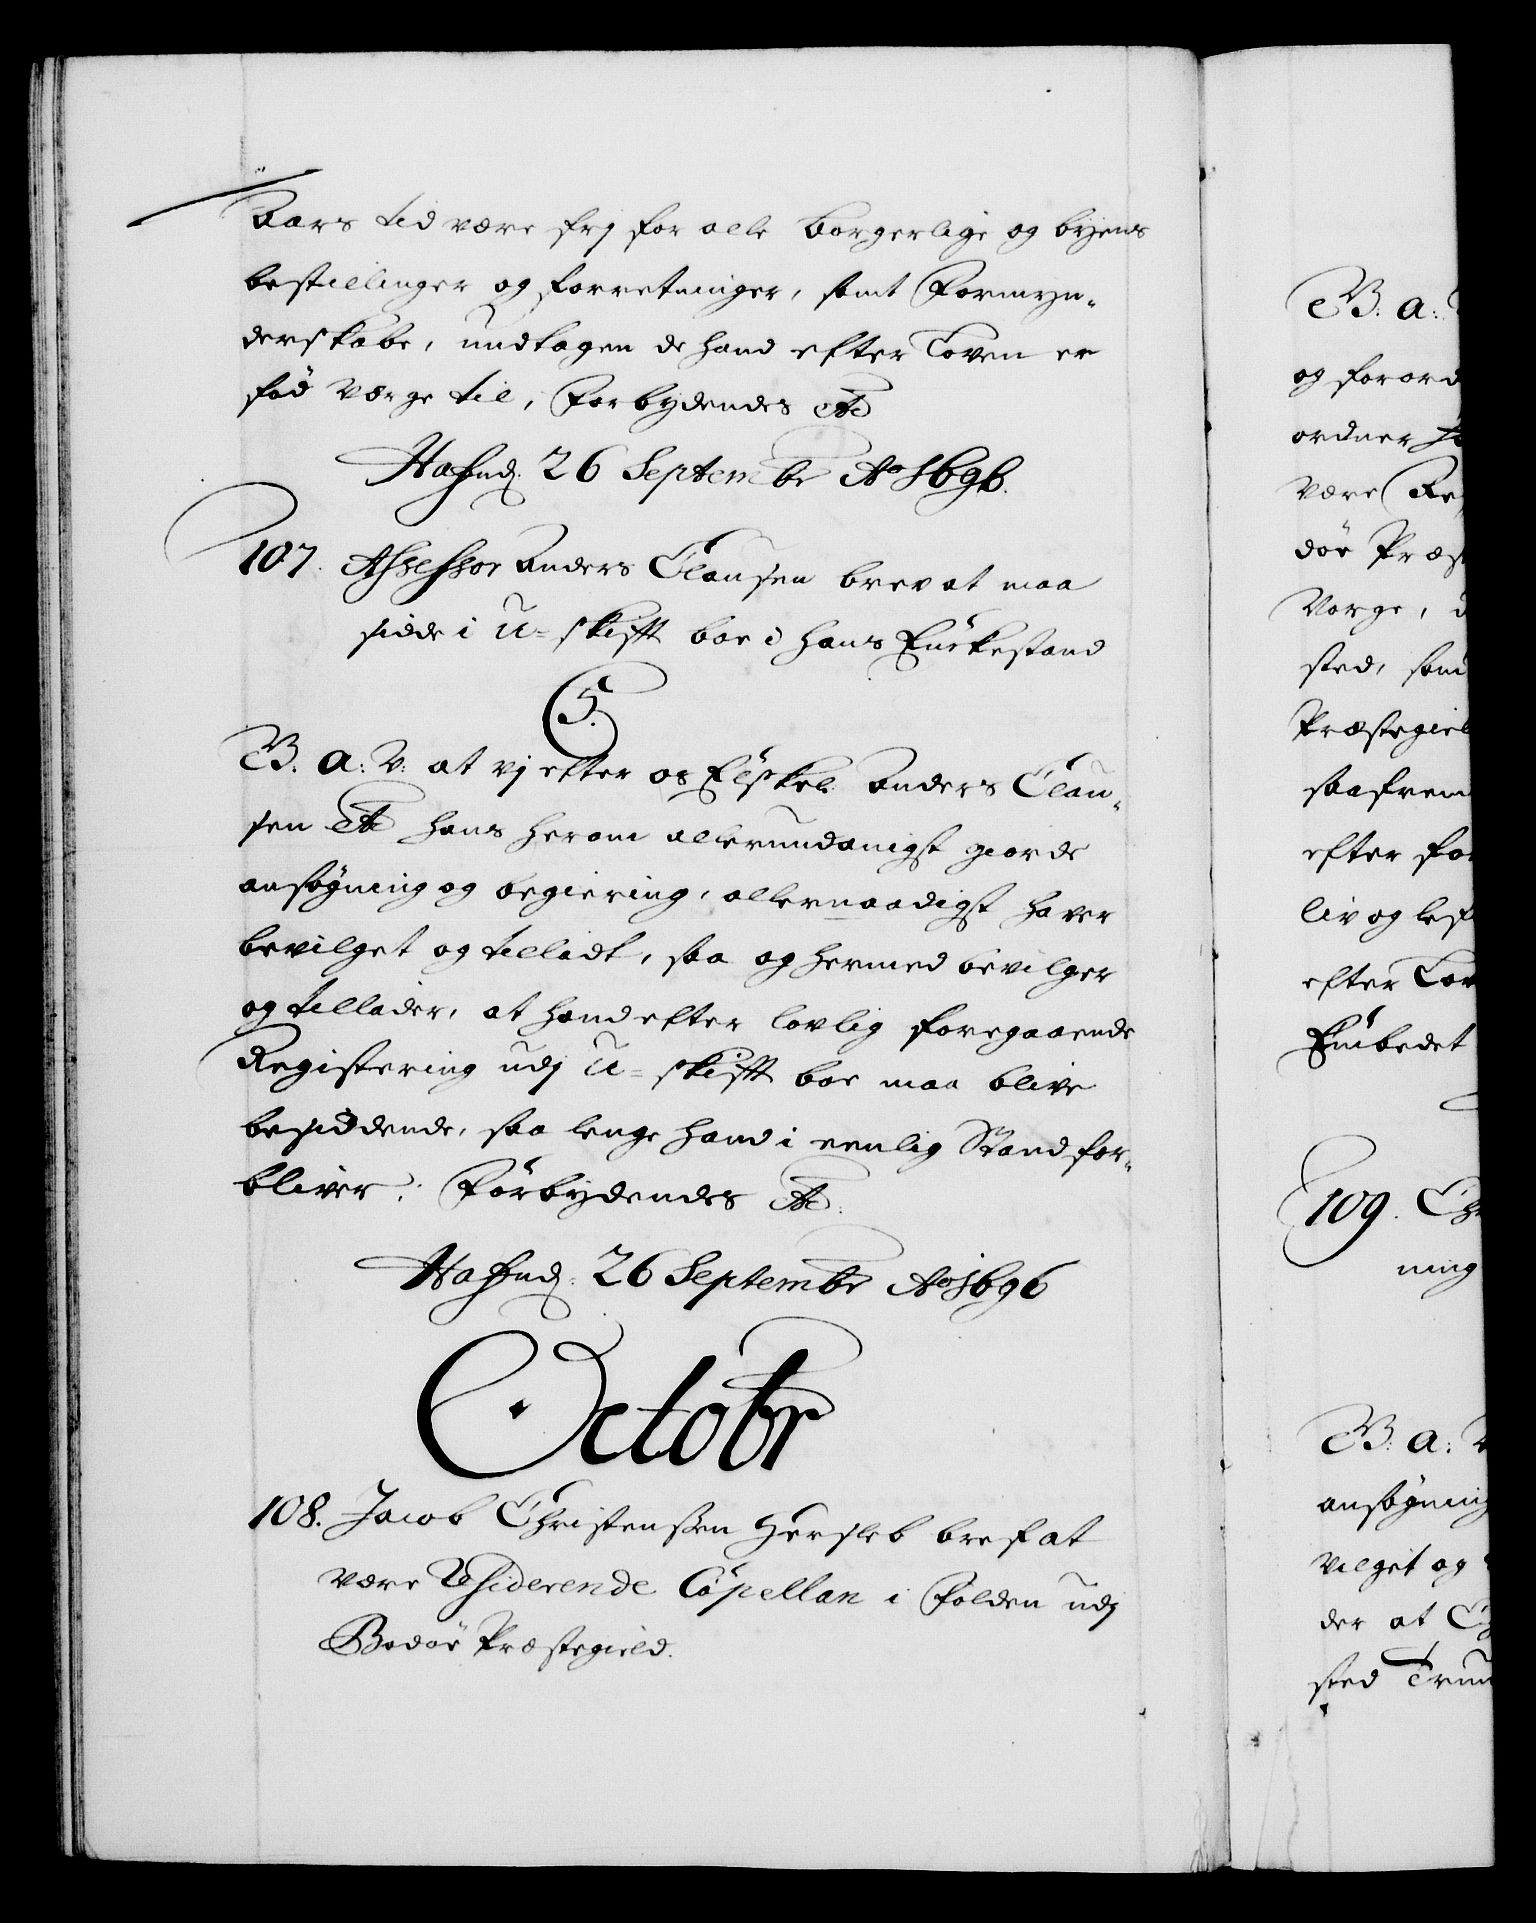 Aars tid være frj for alle borgerlige og byens
bestillinger og forretninger, samt Formyn-
derskabe, undtagen de hand efter Loven er
fød Værge til, Forbydendes etc
Hafniæ d. 26 Septembr Ao 1696.
107. Assessor Anders Clausen brev at maa
sidde i U-skifft boe i hans Enkestand
5.
B. a: V: at vj efter os Elskel. Anders Clau-
sen etc hans herom allerundanigst giorde
ansøgning og begiering, allernaadigst haver
bevilget og tilladt, saa og hermed bevilger
og tillader, at hand efter lovlig foregaaende
Registering udj U-skifft boe maa blive
besiddende, saa lenge hand i eenlig Stand for-
bliver. Forbydendes etc.
Hafniæ d. 26 Septembr Ao 1696
Octobr
108. Jacob Christenssen Hersleb bref at
være Residerende Capellan i Folden udj
Bodøe Præstegield.
B. a:
og forord
ordner
være Re
døe Præst
Vorge,
sted, som
Præstegiel
saafrem
efter for
liv og lef
efter Lov
Embedet
109. Ch
ning
B. a: V
ansøgning
vilget og
der at
sted Trun